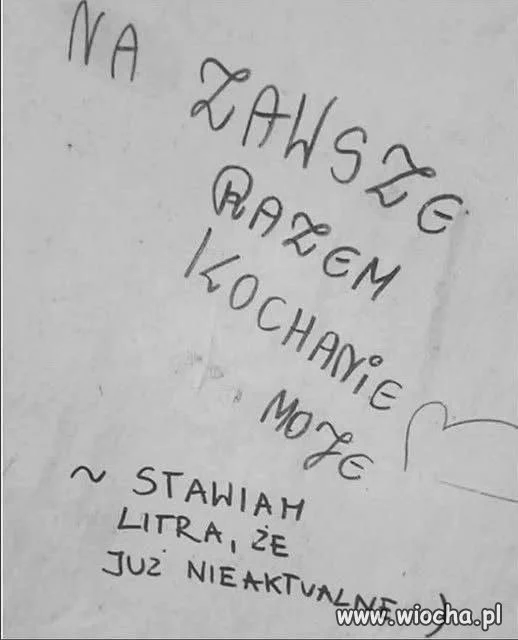 NA ZAWSZE
RAZEM
KOCHANIE
MOJE
~ STAWIAM
LITRA, ŻE
JUŻ NIEAKTUALNE :)
www.wiocha.pl